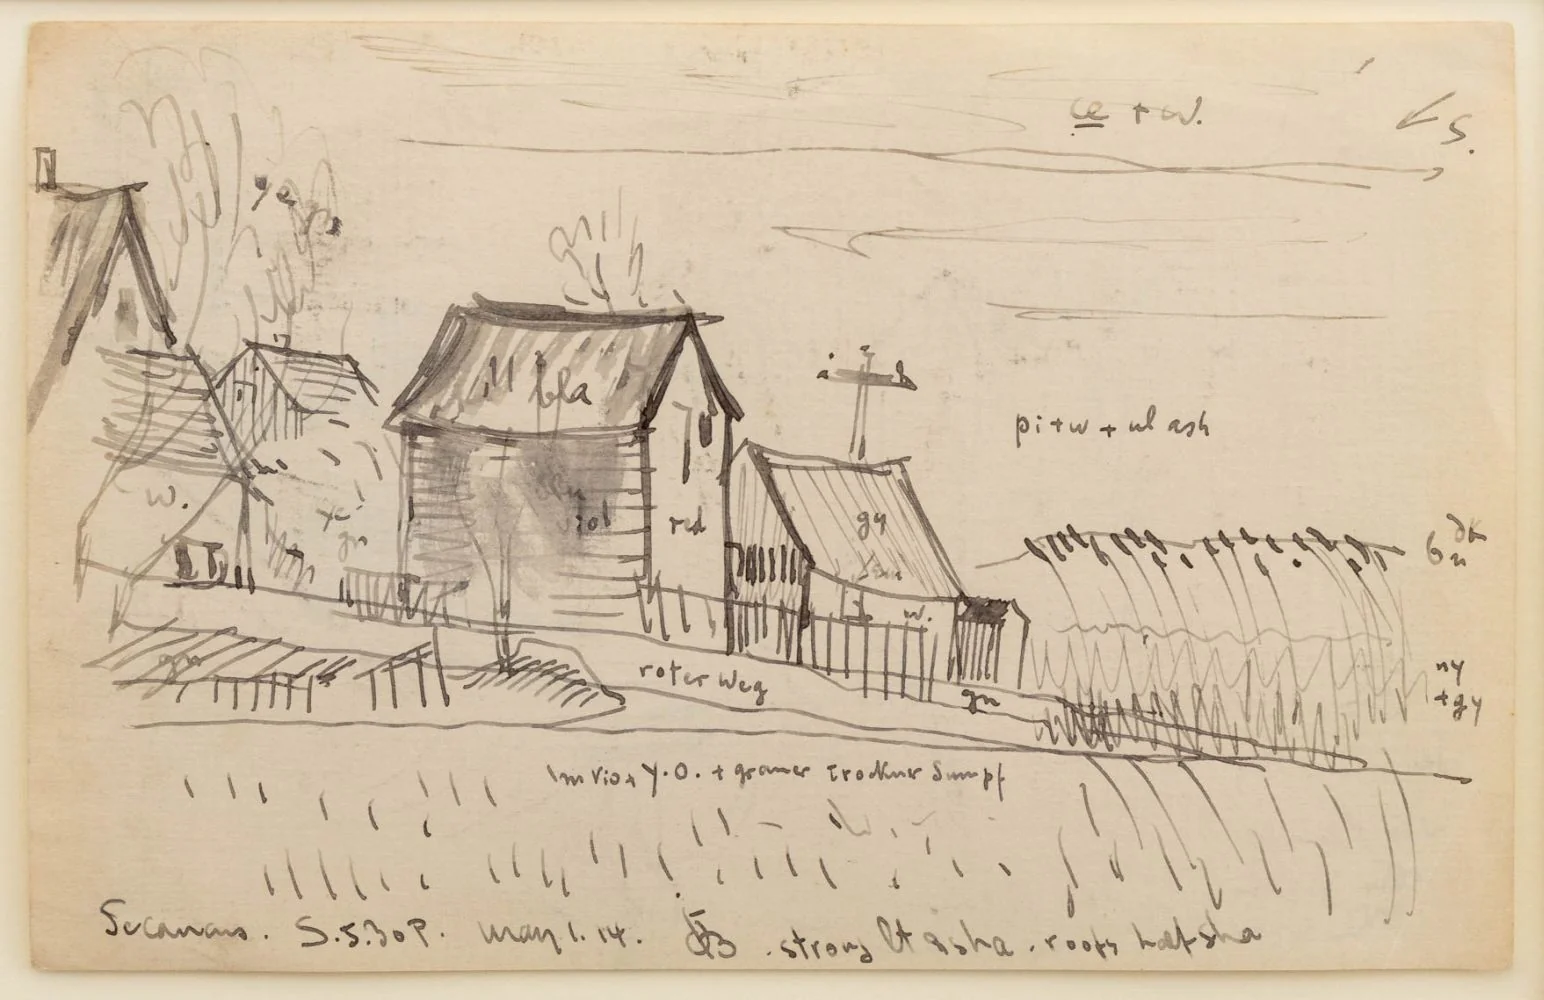 ce + w.
S.
ye
bla
pi + w + ul ash
viol
red
gy
w.
ye
gn
dk
w.
gn
roter Weg
gn
ny
+ gy
Im Vio + Y.O. + grauer trockner Sumpf
Secaucus. S.5.30P. May 1. 14. strong lt & sha. roofs half sha